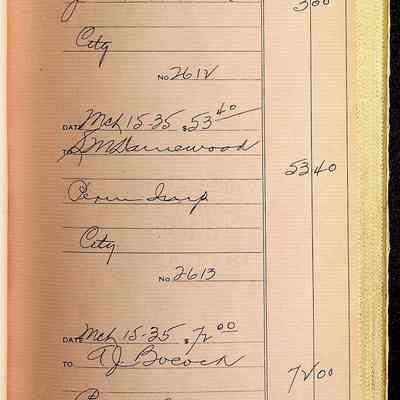 3 00
City
No 2612
DATE Mch 15-35 $53 40
TO S M Damewood
53 40
Perm Imp
City
No 2613
DATE Mch 15-35 $72 00
TO A J Bocock
72 00